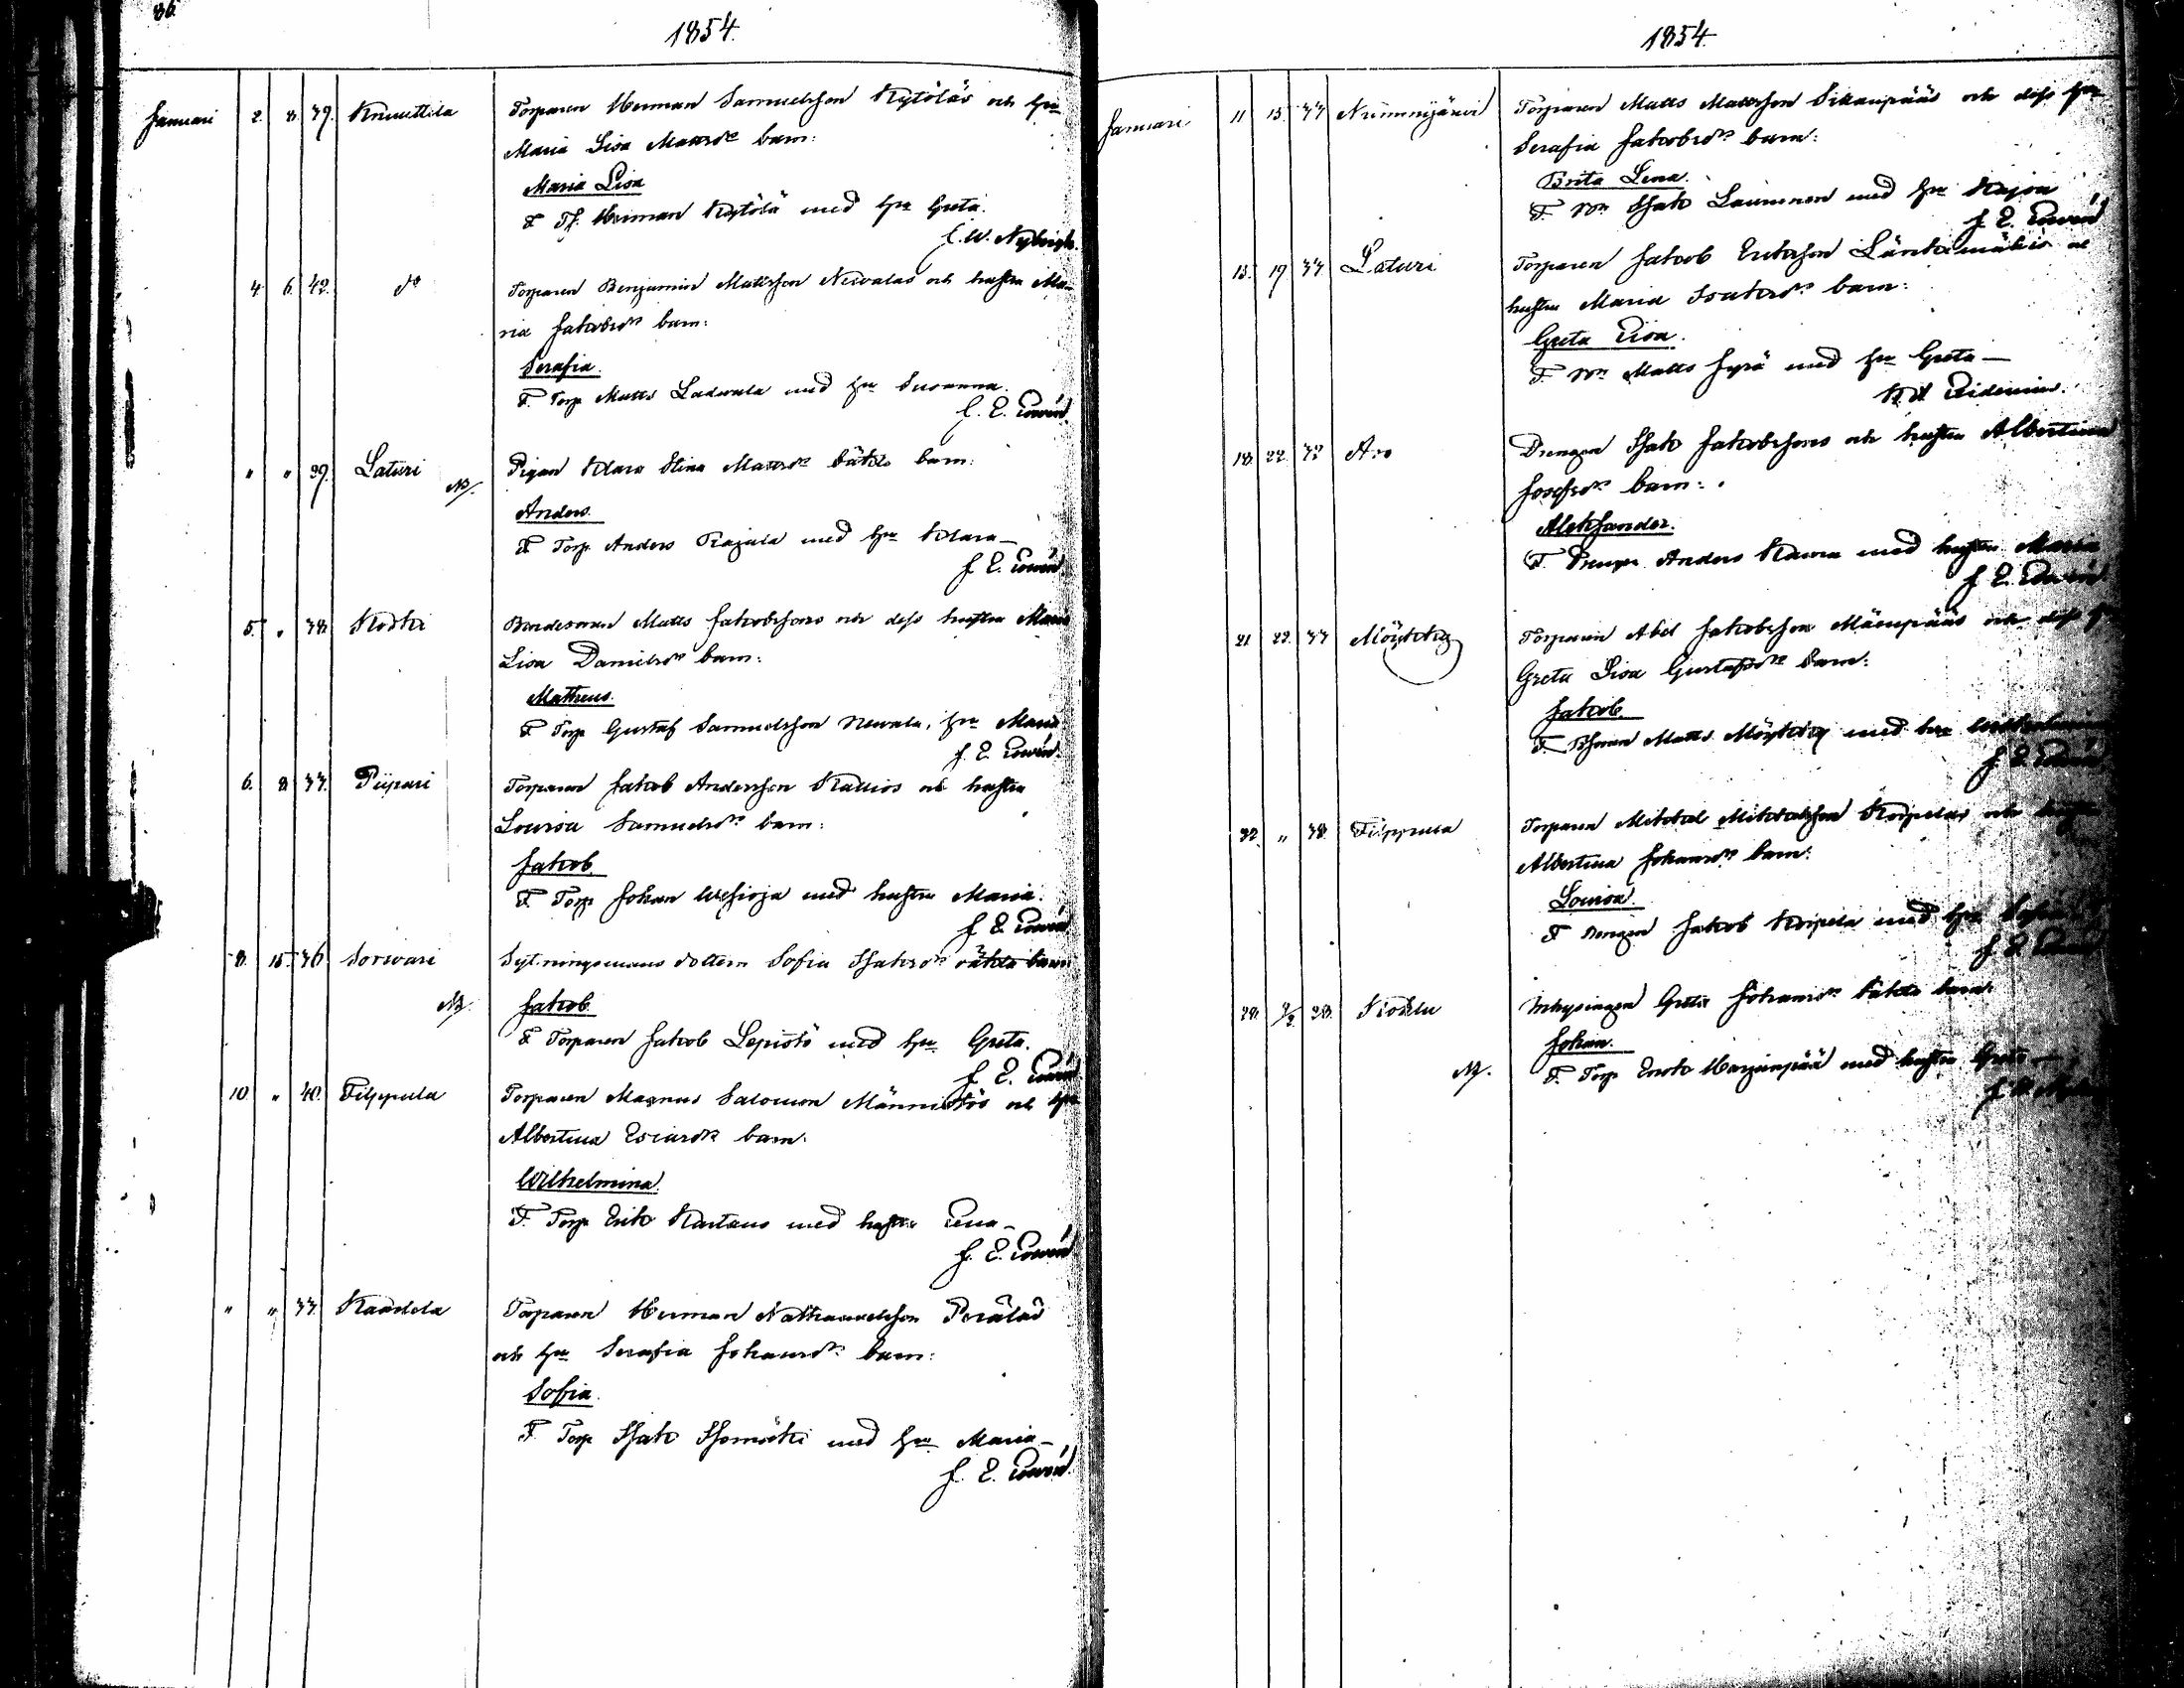 86
1854.
Januari 2. 8. 39. Knuuttila Torparen Herman Samuelsson Kytöläs och hu
Maria Lisa Mattsdr barn:
Maria Lisa
F. Tf. Herman Kytölä med hu Greta.
C. W. Nybergh.
4. 6. 42. do Torparen Benjamin Mattsson Newalas och hustru Ma-
ria Jakobsdr barn:
Serafia.
F. Torp Matts Ladwala med hu Susanna.
J. E. Edwén.
" " 39. Laturi Pigan Klara Stina Mattsdr oäkta barn:
NB.
Anders.
F. Torp. Anders Rajala med hu Klara
J. E. Edwén
5. " 38. Koski Bondesonen Matts Jakobssons och dess hustru Maria
Lisa Danielsdr barn:
Matheus.
F. Torp Gustaf Samuelsson Newala, hu Maria
J. E. Edwén.
6. 8. 37. Piipari Torparen Jakob Andersson Kallios och hustru
Lovisa Samuelsdr barn:
Jakob.
F. Torp Johan Wesioja med hustru Maria.
J. E. Edwén
8. 15. 36 Sorwari Sytningsmans dottern Sofia Isaksdr oäkta barn:
NB. Jakob.
F. Torparen Jakob Lepistö med hu Greta.
J. E. Edwén
10. " 40. Filppula Torparen Magnus Salomon Männistös och hu
Albertina Esiasdr barn:
Wilhelmina.
F. Torp Erik Kastaus med hustru Lena
J. E. Edwén
" " 37. Kaakela Torparen Herman Nathanaelsson Peräläs
och hu Serafia Johansdr barn:
Sofia.
F. Torp Isak Isomäki med hu Maria
J. E. Edwén.
1854.
Januari 11 15. 37 Nurmijärvi Torparen Matts Mattsson Sikanpääs och dess hu
Serafia Jakobsdr barn:
Brita Lena.
F. Bn Isak Laurinen med hu Kajsa
J. E. Edwén
15. 19. 37 Laturi Torparen Jakob Eriksson Länkimäkis o
hustru Maria Isaksdr barn:
Greta Lisa.
F. Bn Matts Jyrä med hu Greta
18. 22. Aro Drengen Isak Jakobssons och hustru Albertina
Josefsdr barn:
Aleksander.
F. Drengen Anders Kaura med hustru Maria
J. E. Edwén
21 22. 37 Möykky Torparen Abel Jakobsson Mäenpääs och dess
Greta Lisa Gustafsdr barn:
Jakob.
F. Matts Möykky med
J. E. Edwén
22. " 38. Filppula Torparen Mikael Mikaelsson Korpelas och
Albertina Johansdr barn:
Lovisa.
F. Drengen Jakob Korpela med hu
J. E. Edwén
28. 28. Inhysingen Greta Johansdr oäkta barn:
Johan.
NB. F. Torp Enok Harjunpää med hustru Greta